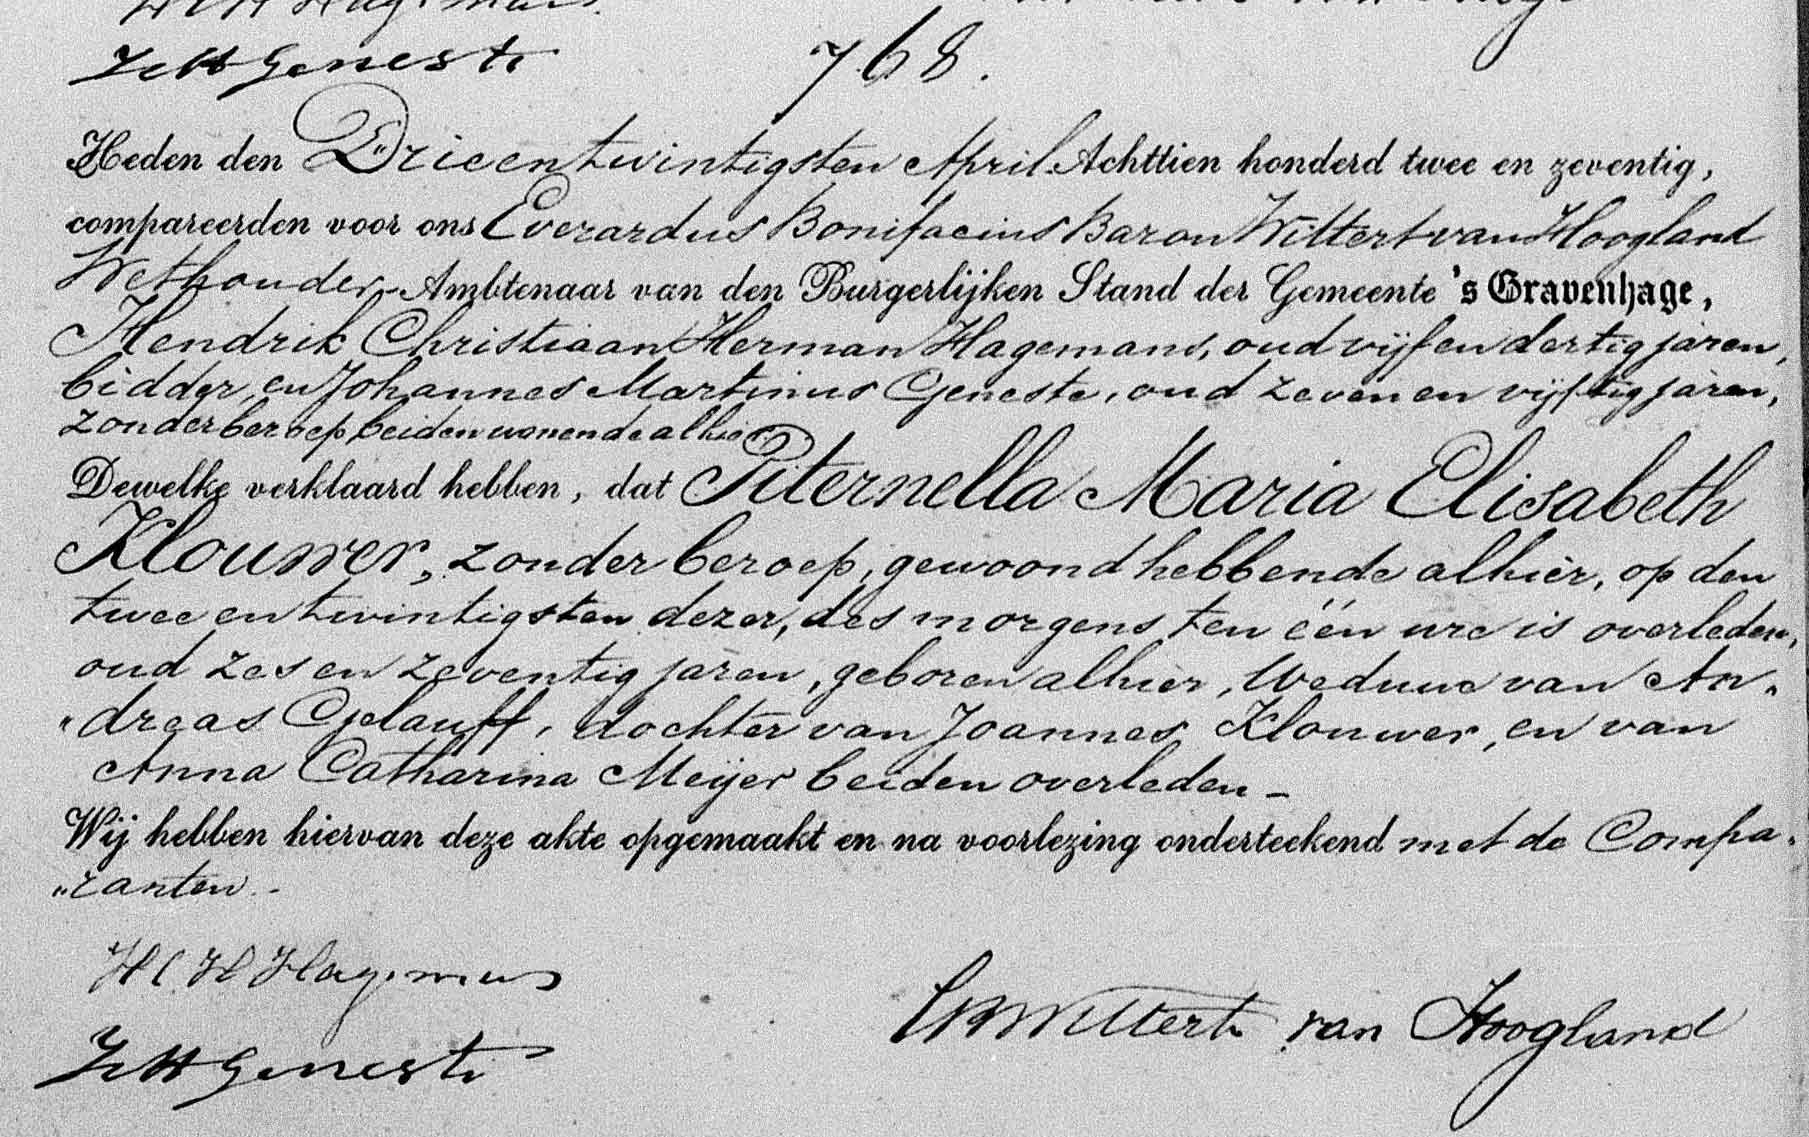 H C H Hagemans
J M Geneste
768.
Heden den Drieentwintigsten April Achttien honderd twee en zeventig,
compareerden voor ons Everardus Bonifacius Baron Wittert van Hoogland
Wethouder, Ambtenaar van den Burgerlijken Stand der Gemeente 's Gravenhage,
Hendrik Christiaan Herman Hagemans, oud vijf en dertig jaren,
bidder, en Johannes Martinus Geneste, oud zeven en vijftig jaren,
zonder beroep beiden wonende alhier
Dewelke verklaard hebben, dat Piternella Maria Elisabeth
Klouwer, zonder beroep, gewoond hebbende alhier, op den
twee en twintigsten dezer, des morgens ten één ure is overleden,
oud zes en zeventig jaren, geboren alhier, Weduwe van An„
„dreas Gelauff, dochter van Joannes Klouwer, en van
Anna Catharina Meijer beiden overleden –
Wij hebben hiervan deze akte opgemaakt en na voorlezing onderteekend met de Compa„
„ranten. -
H C H Hagemans
EBWittert van Hoogland
J M Geneste